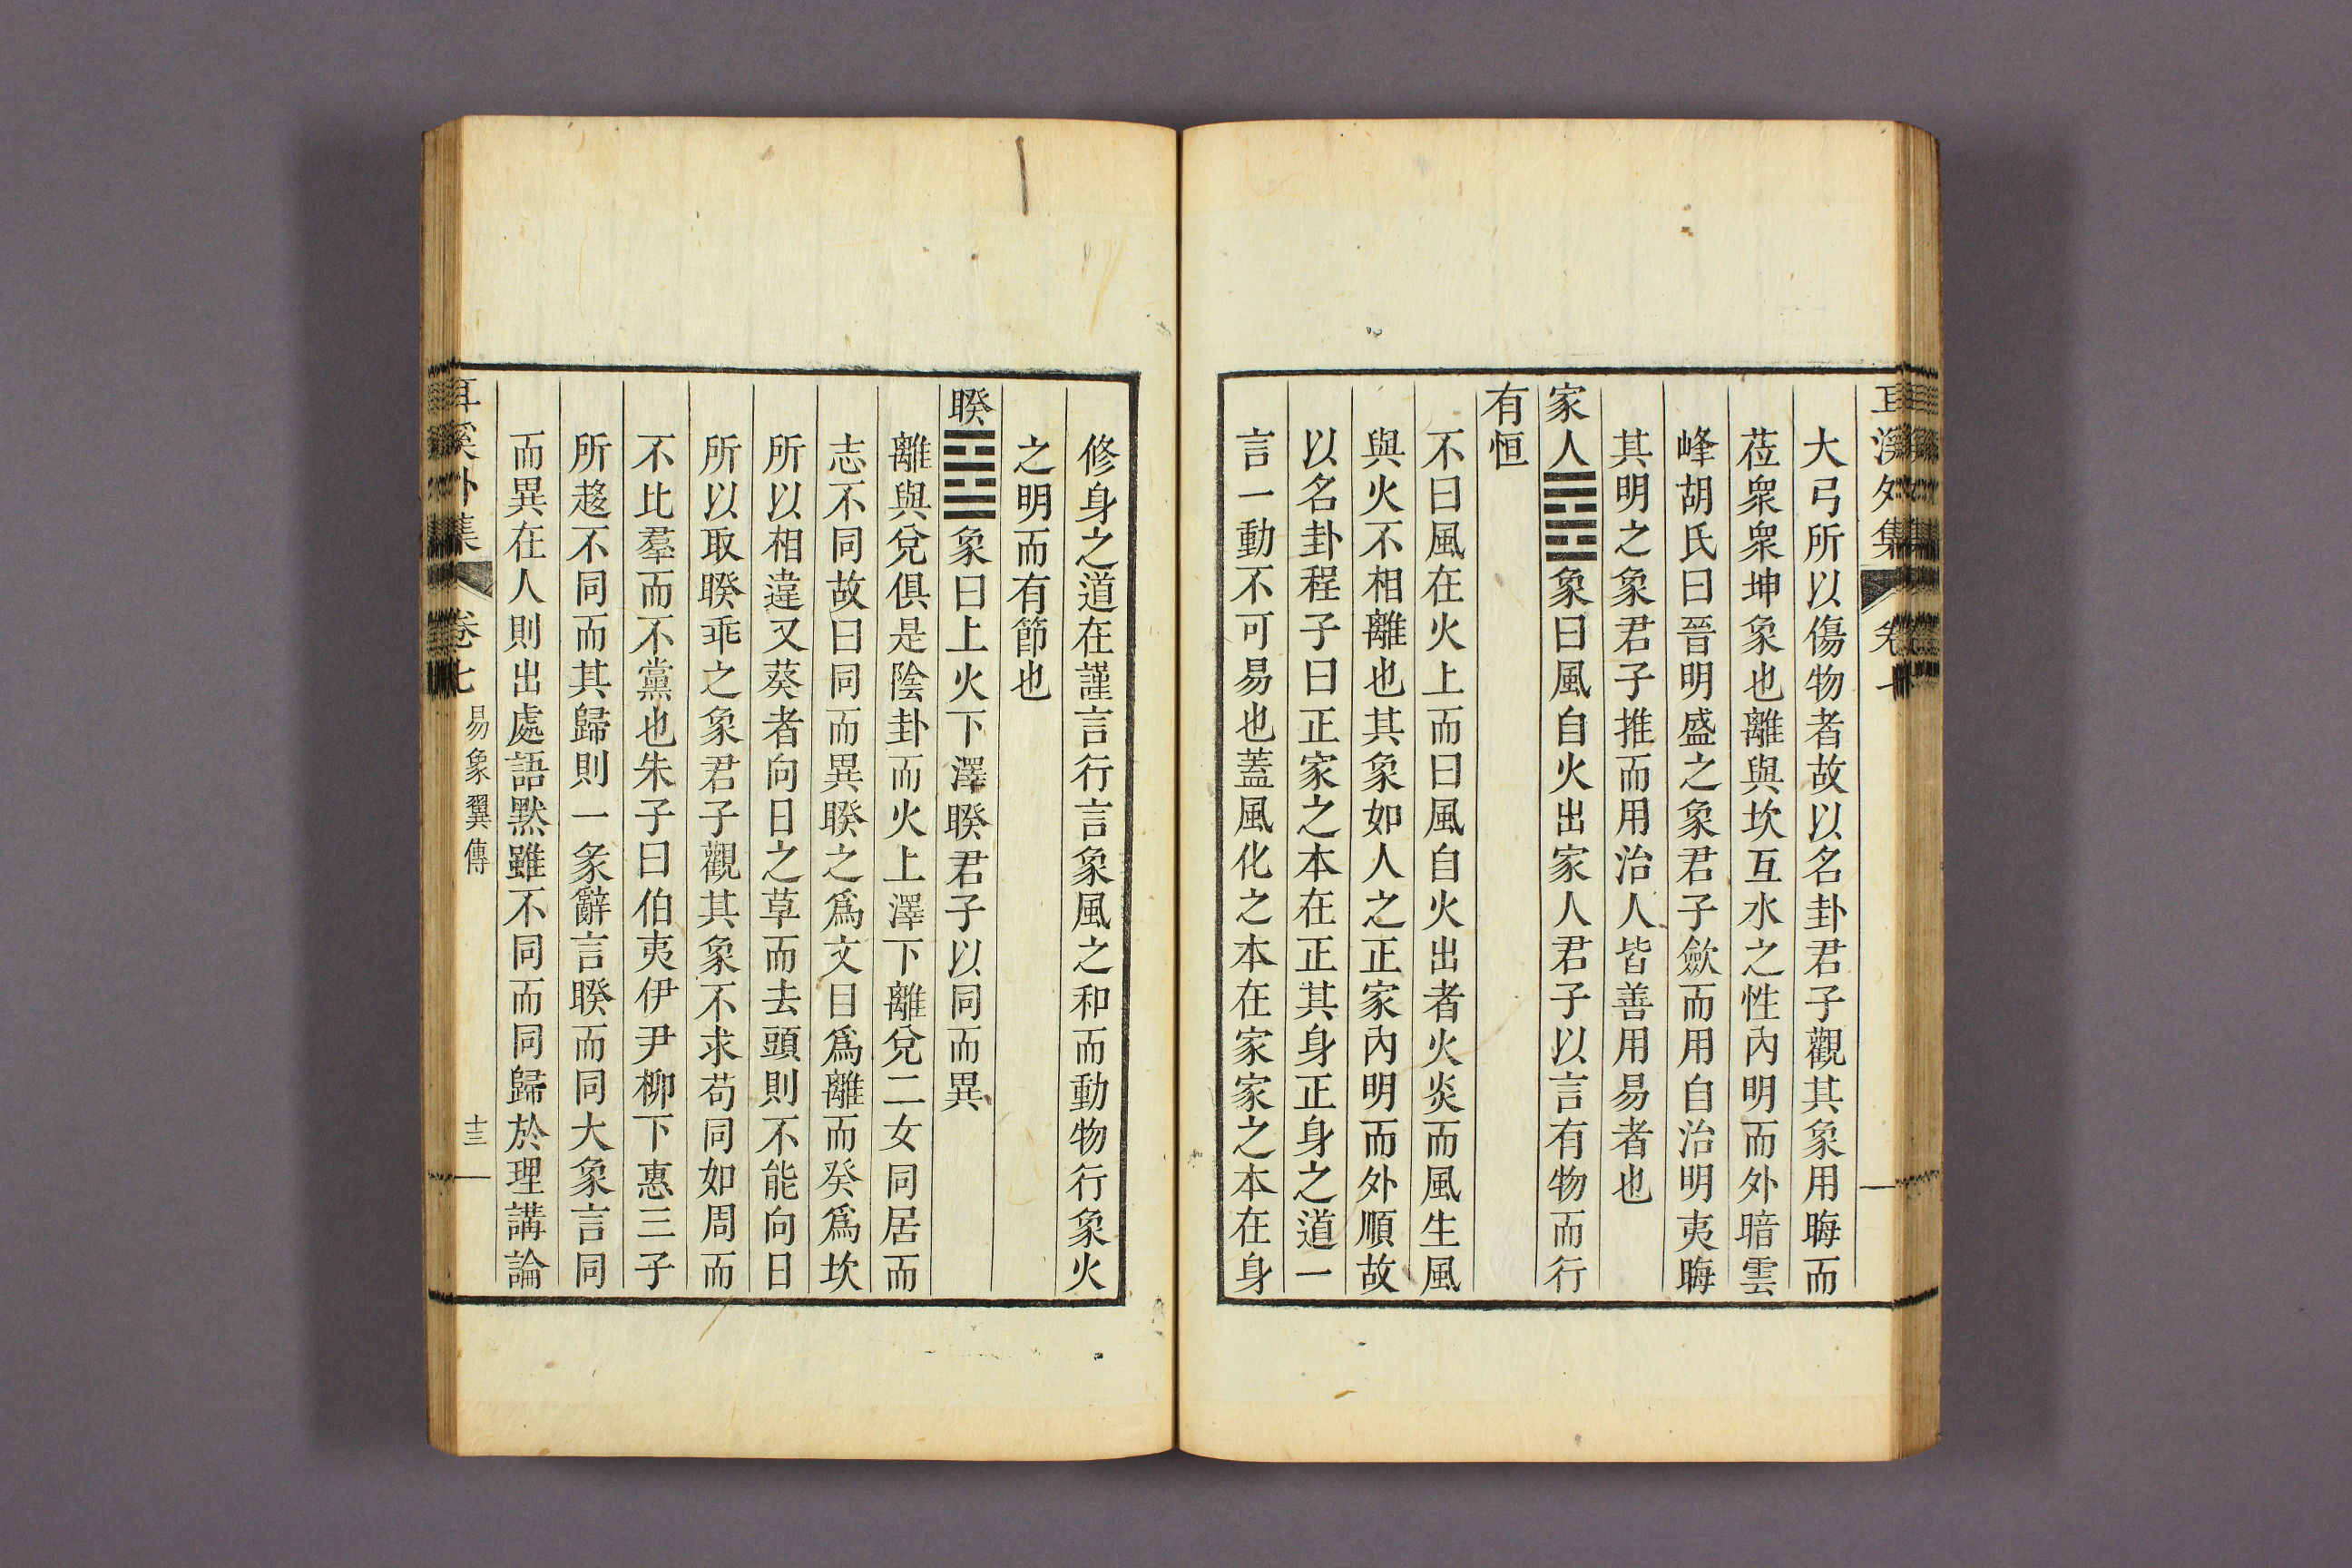 耳溪外集 卷七
大弓所以傷物者故以名卦君子觀其象用晦而
莅衆衆坤象也離與坎互水之性內明而外暗雲
峰胡氏曰晉明盛之象君子歛而用自治明夷晦
其明之象君子推而用治人皆善用易者也
家人䷤象曰風自火出家人君子以言有物而行
有恒
不曰風在火上而曰風自火出者火炎而風生風
與火不相離也其象如人之正家內明而外順故
以名卦程子曰正家之本在正其身正身之道一
言一動不可易也蓋風化之本在家家之本在身
修身之道在謹言行言象風之和而動物行象火
之明而有節也
睽䷥象曰上火下澤睽君子以同而異
離與兌俱是陰卦而火上澤下離兌二女同居而
志不同故曰同而異睽之爲文目爲離而癸爲坎
所以相違又葵者向日之草而去頭則不能向日
所以取睽乖之象君子觀其象不求苟同如周而
不比羣而不黨也朱子曰伯夷伊尹柳下惠三子
所趍不同而其歸則一彖辭言睽而同大象言同
而異在人則出處語默雖不同而同歸於理講論
耳溪外集 卷七 易象翼傳 十三